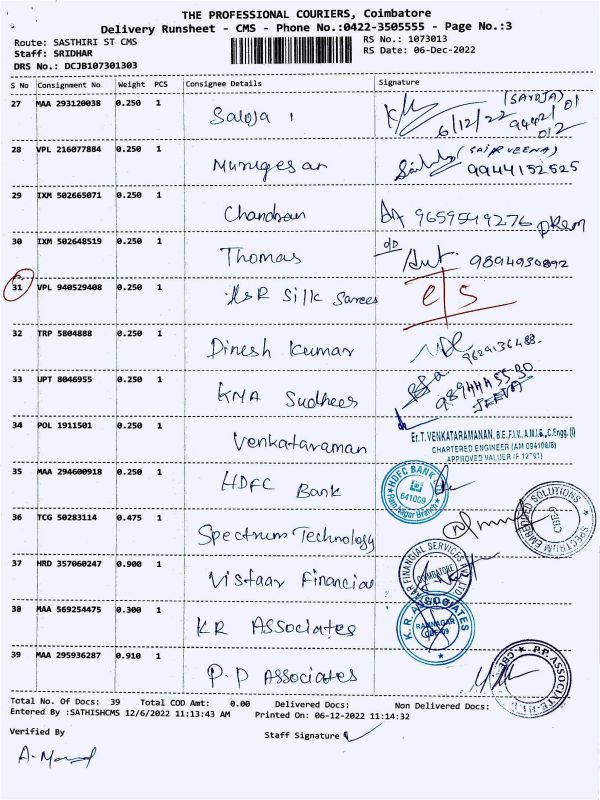 THE PROFESSIONAL COURIERS, Coimbatore
Delivery Runsheet - CMS - Phone No.:0422-3505555 - Page No.:3
Route: SASTHIRI ST CMS RS No.: 1073013
Staff: SRIDHAR RS Date: 06-Dec-2022
DRS No.: DCJB107301303
S No Consignment No Weight PCS Consignee Details Signature
27 MAA 293120038 0.250 1 Saloja (SAROJA)
6/12/22
28 VPL 216077884 0.250 1 Murugesan (SAIPRVEENA)
9944152525
29 IXM 502665071 0.250 1 Chandran 9659549276 PREM
30 IXM 502648519 0.250 1 Thomas 9894930892
31 VPL 940529408 0.250 1 KSR Silk Sarees e/s
32 TRP 5804888 0.250 1 Dinesh Kumar 9629136488
33 UPT 8046955 0.250 1 KNA Sudhees
JEEVA
34 POL 1911501 0.250 1 Venkataraman Er.T.VENKATARAMANAN, B.E,F.I.V., A.M.I.E., C.Engg.(I)
CHARTERED ENGINEER (AM 094108/8)
APPROVED VALUER (F 12791)
35 MAA 294600918 0.250 1 HDFC Bank HDFC BANK
641009
Ram Nagar Branch
36 TCG 50283114 0.475 1 Spectrum Technology SPECTRUM EMBEDDED SOLUTIONS
CBE-9
37 HRD 357060247 0.900 1 Vistaar Financial FINANCIAL SERVICES PVT LTD
COIMBATORE
38 MAA 569254475 0.300 1 KR Associates K.R. ASSOCIATES
RAMNAGAR
CBE-09
39 MAA 295936287 0.910 1 P.P Associates P.P. ASSOCIATE
CBE
Total No. Of Docs: 39 Total COD Amt: 0.00 Delivered Docs: Non Delivered Docs:
Entered By :SATHISHCMS 12/6/2022 11:13:43 AM Printed On: 06-12-2022 11:14:32
Verified By Staff Signature